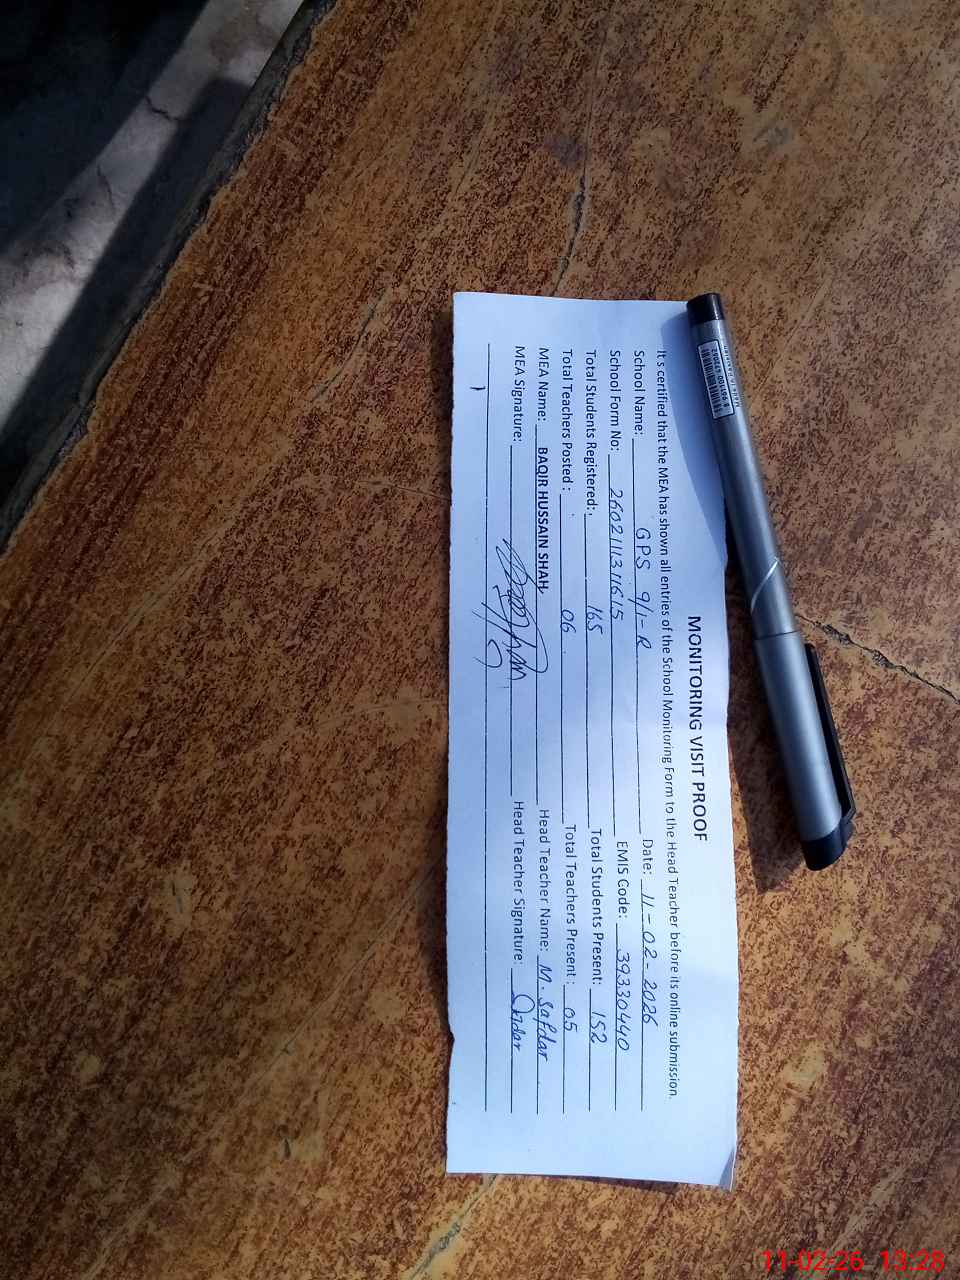 MONITORING VISIT PROOF
It s certified that the MEA has shown all entries of the School Monitoring Form to the Head Teacher before its online submission.
School Name: GPS 9/1-R Date: 11-02-2026
School Form No: 2602111311615 EMIS Code: 39330440
Total Students Registered: 165 Total Students Present: 152
Total Teachers Posted: 06 Total Teachers Present: 05
MEA Name: BAQIR HUSSAIN SHAH Head Teacher Name: M. Safdar
MEA Signature: Head Teacher Signature:
11-02-26 13:28